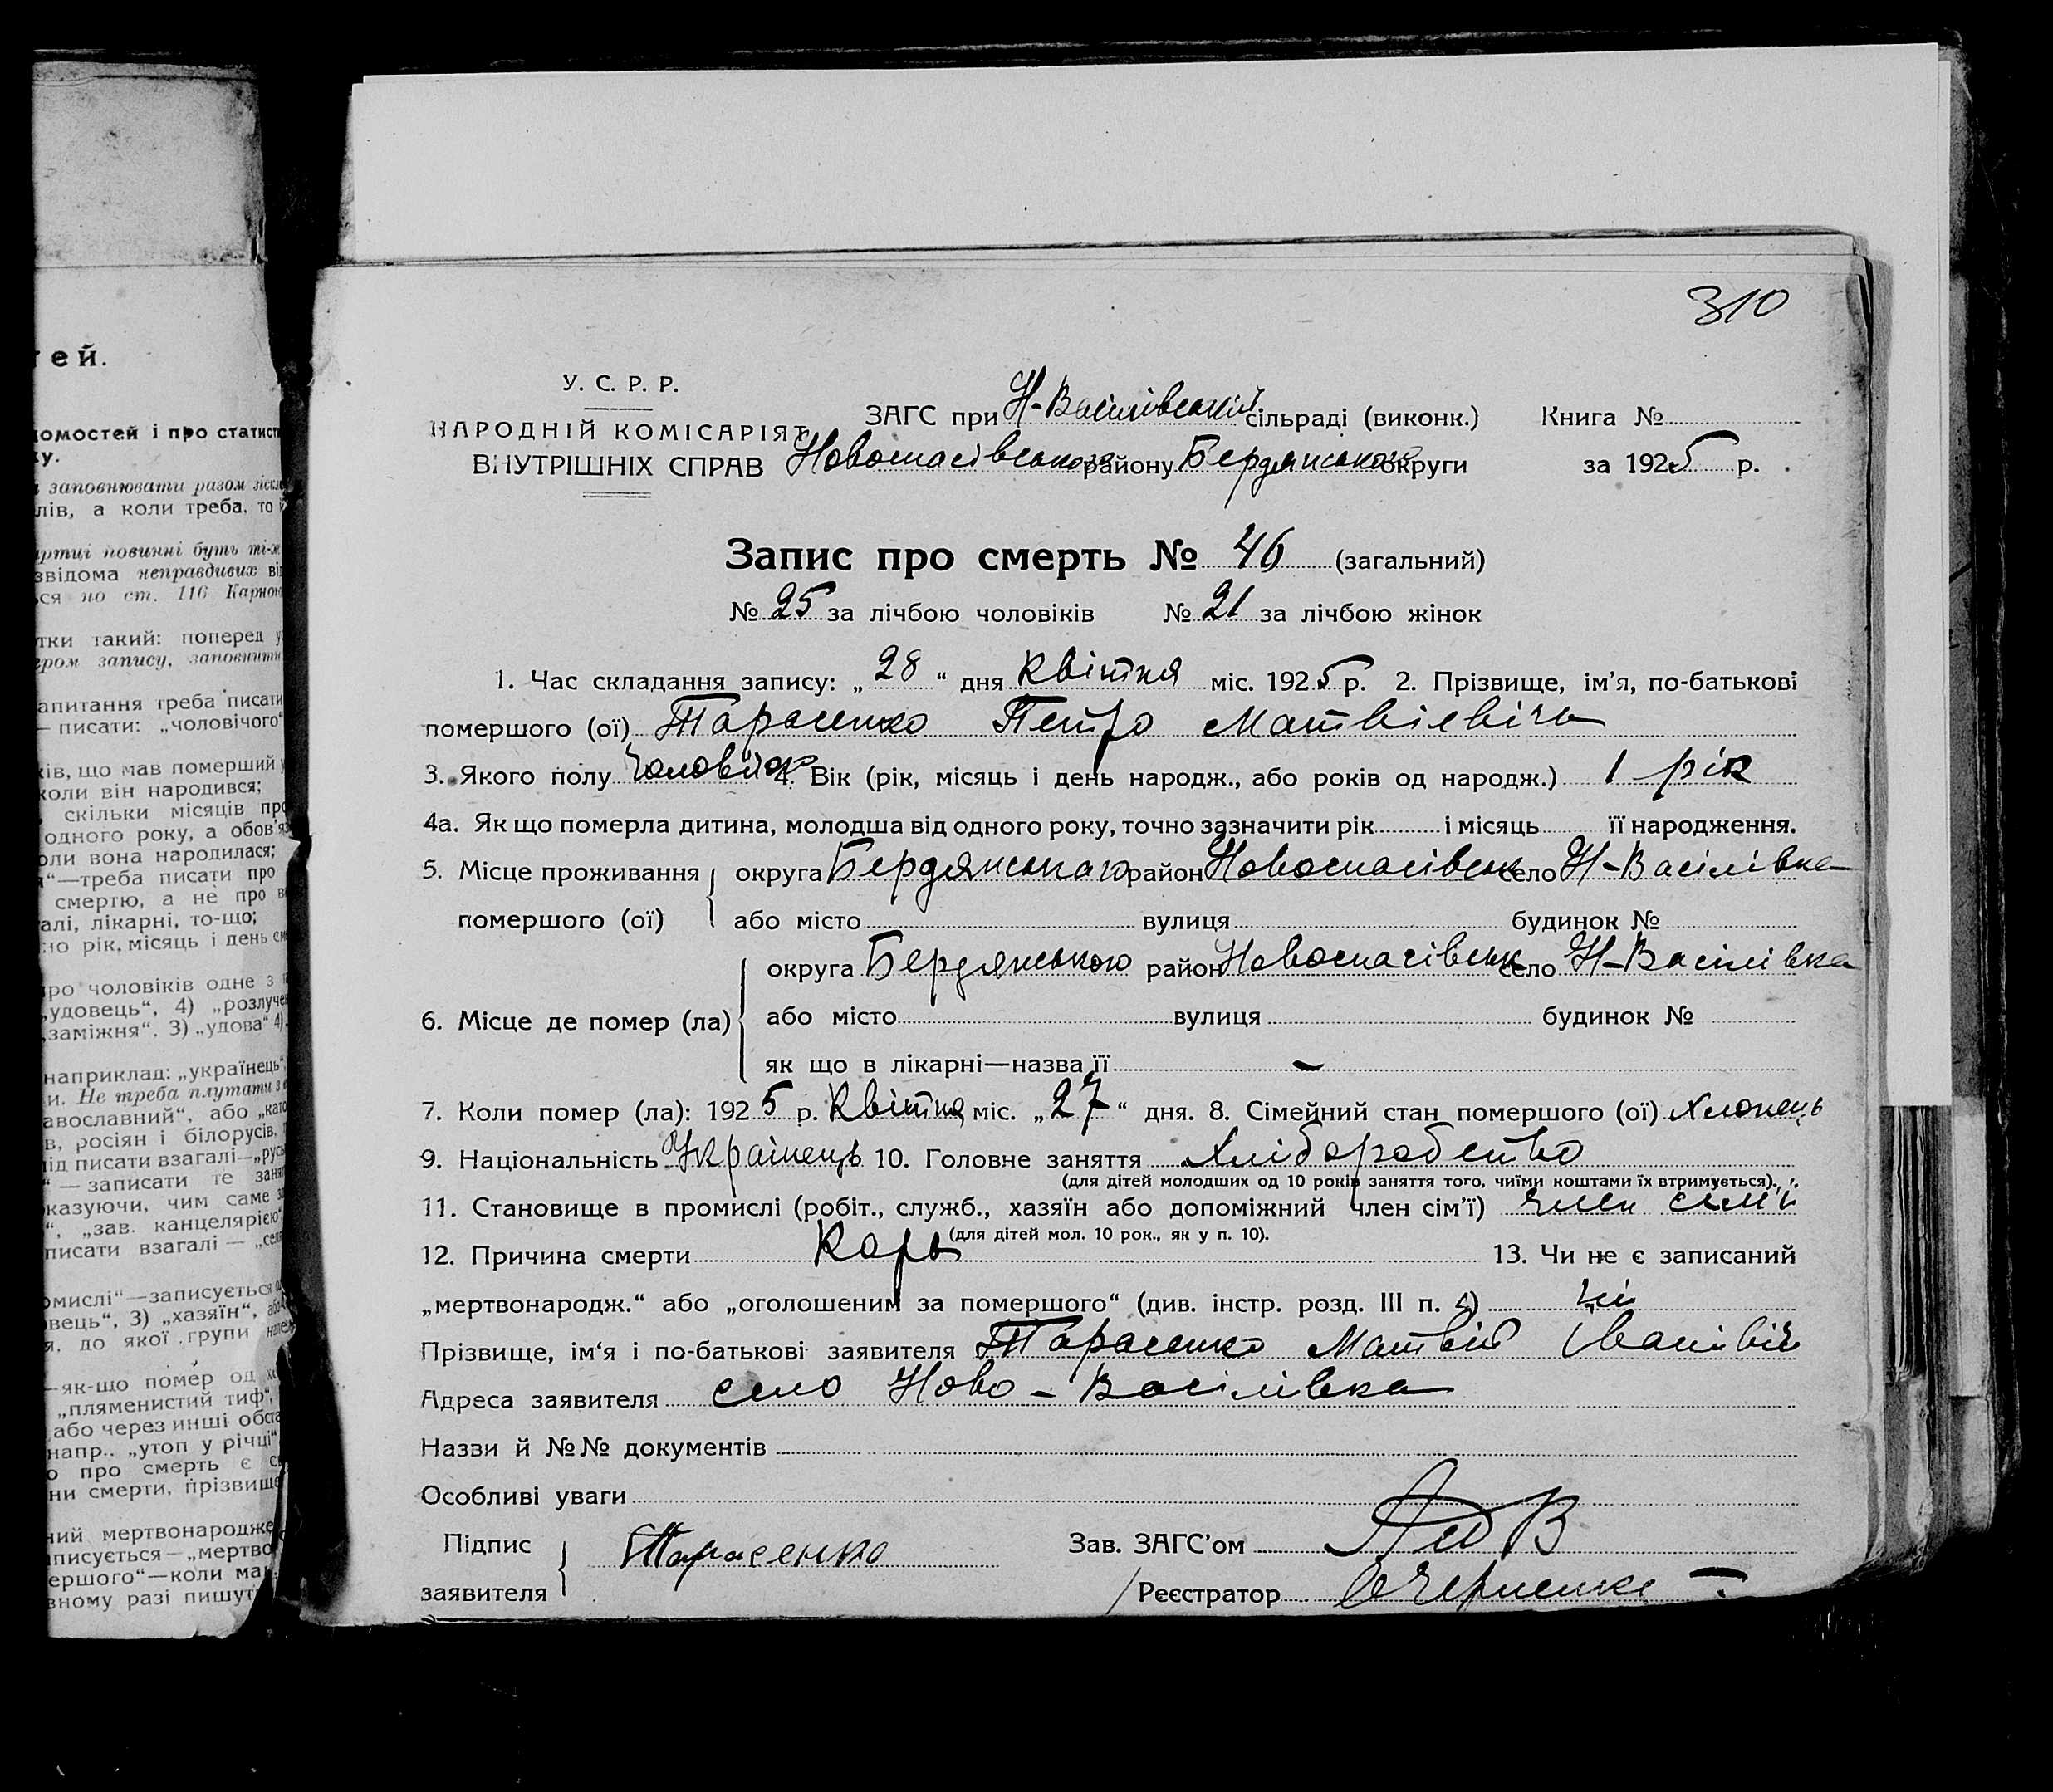 тей.
омостей і про статист
ку.
заповнювати разом зіскл
лів, а коли треба, то й
артці повинні буть ті-ж
звідома неправдивих ві
ься по ст. 116 Карно
тки такий: поперед у
ером запису, заповнити
апитання треба писати
— писати: „чоловічого"
ків, що мав померший у
коли він народився;
скільки місяців про
одного року, а обов'яз
оли вона народилася;
я"—треба писати про
смертю, а не про в
алі, лікарні, то-що;
но рік, місяць і день см
ро чоловіків одне з
„удовець", 4) „розлуче
„заміжня". 3) „удова" 4)
наприклад: „українець"
и. Не треба плутати з
авославний", або „като
в, росіян і білорусів,
ід писати взагалі—„русь
" — записати те заня
казуючи, чим саме з
", „зав. канцелярією"
писати взагалі — „сел
омислі"—записується о
овець", 3) „хазяїн", або
я, до якої групи нале
—як-що помер од
„пляменистий тиф",
або через инші обста
напр.. „утоп у річці"
о про смерть є с
ни смерти, прізвище
ний мертвонародже
писується—„мертво
ершого"—коли ма
вному разі пишут
310
У. С. Р. Р.
НАРОДНІЙ КОМІСАРІЯТ
ВНУТРІШНІХ СПРАВ
ЗАГС при Н-Васілівській сільраді (виконк.) Книга №
Новоспасівського району Бердянського округи за 1925 р.
Запис про смерть № 46 (загальний)
№ 25 за лічбою чоловіків № 21 за лічбою жінок
1. Час складання запису: „28" дня Квітня міс. 1925 р. 2. Прізвище, ім'я, по-батькові
помершого (ої) Тарасенко Петро Матвієвічь
3. Якого полу Чоловічого 4. Вік (рік, місяць і день народж., або років од народж.) 1 рік
4а. Як що померла дитина, молодша від одного року, точно зазначити рік і місяць її народження.
5. Місце проживання помершого (ої) округа Бердянського район Новоспасівськ село Н-Васілівка
або місто вулиця будинок №
6. Місце де помер (ла) округа Бердянського район Новоспасівськ село Н-Васілівка
або місто вулиця будинок №
як що в лікарні—назва її –
7. Коли помер (ла): 1925 р. Квітня міс. „27" дня. 8. Сімейний стан помершого (ої) Хлопець
9. Національність Українець 10. Головне заняття Хліборобство
(для дітей молодших од 10 років заняття того, чиїми коштами їх втримується).
11. Становище в промислі (робіт., служб., хазяїн або допоміжний член сім'ї) член сімї
(для дітей мол. 10 рок., як у п. 10).
12. Причина смерти Корь 13. Чи не є записаний
„мертвонародж." або „оголошеним за помершого" (див. інстр. розд. III п. 4) ні
Прізвище, ім'я і по-батькові заявителя Тарасенко Матвій Іванівіч
Адреса заявителя село Ново-Васілівка
Назви й №№ документів
Особливі уваги
Підпис заявителя Тарасенко Зав. ЗАГС'ом
Реєстратор